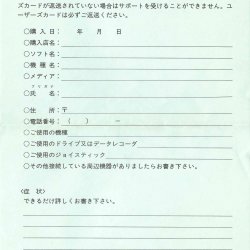 ズカードが返送されていない場合はサポートを受けることができません。ユ
ーザーズカードは必ずご返送ください。
○購入日： 年 月 日
○購入店名：
○ソフト名：
○機種名：
○メディア：
フリガナ
○氏名：
○住所：〒
○電話番号：（ ） －
○ご使用の機種
○ご使用のドライブ又はデータレコーダ
○ご使用のジョイスティック
○その他接続している周辺機器がありましたらお書き下さい。
〈症状〉
できるだけ詳しくお書き下さい。